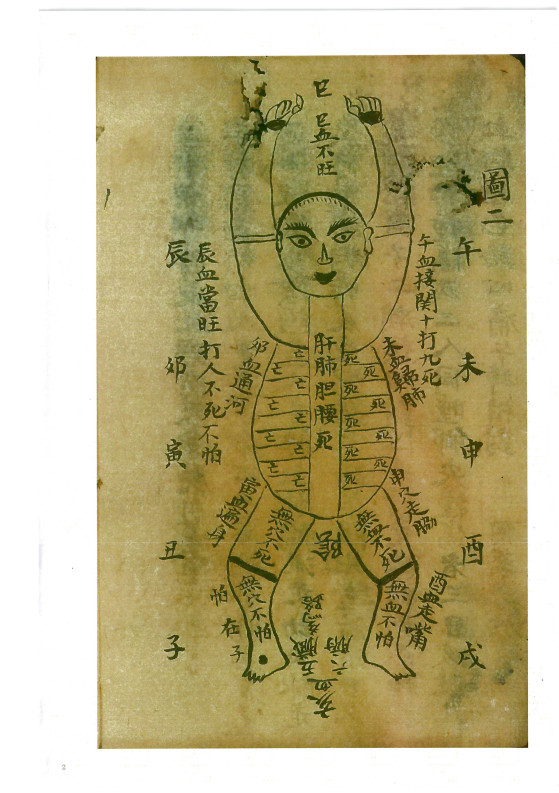 圖二
巳
巳血不旺
午
未
申
酉
戌
午血接関十打九死
未血歸肺
申穴走腸
酉血走嘴
肝肺胆腰死
死
死
死
死
死
死
死
死
死
死
亡
亡
亡
亡
亡
亡
亡
亡
亡
亡
陰
無血不死
無血不怕
無穴不死
無穴不怕
辰血當旺打人不死不怕
卯血通河
寅血遍身
怕在子
辰
卯
寅
丑
子
亥血五臟
六腑
2